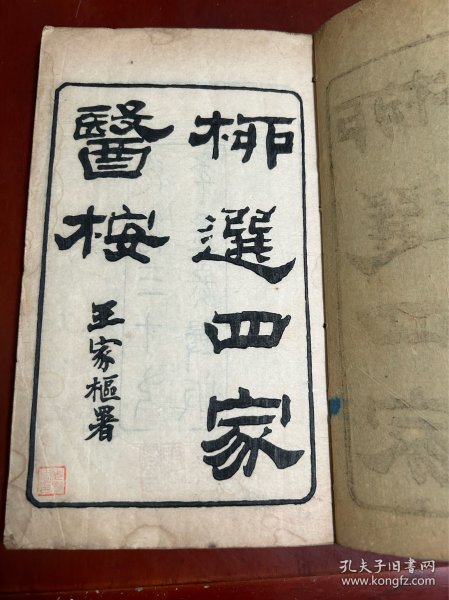 柳選四家
醫桉
王家樞署
孔夫子旧书网
www.kongfz.com